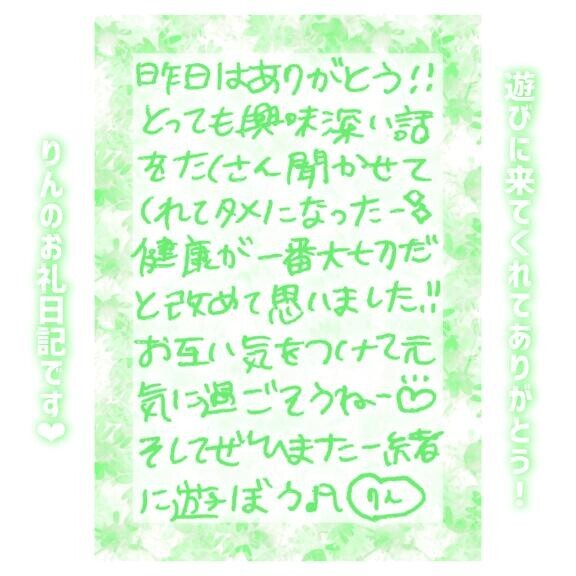 遊びに来てくれてありがとう！
昨日はありがとう!!
とっても興味深い話
をたくさん聞かせて
くれてタメになったー
健康が一番大切だ
と改めて思いました!!
お互い気をつけて元
気に過ごそうねー♡
そしてぜひまた一緒
に遊ぼう♫ りん
りんのお礼日記です❤